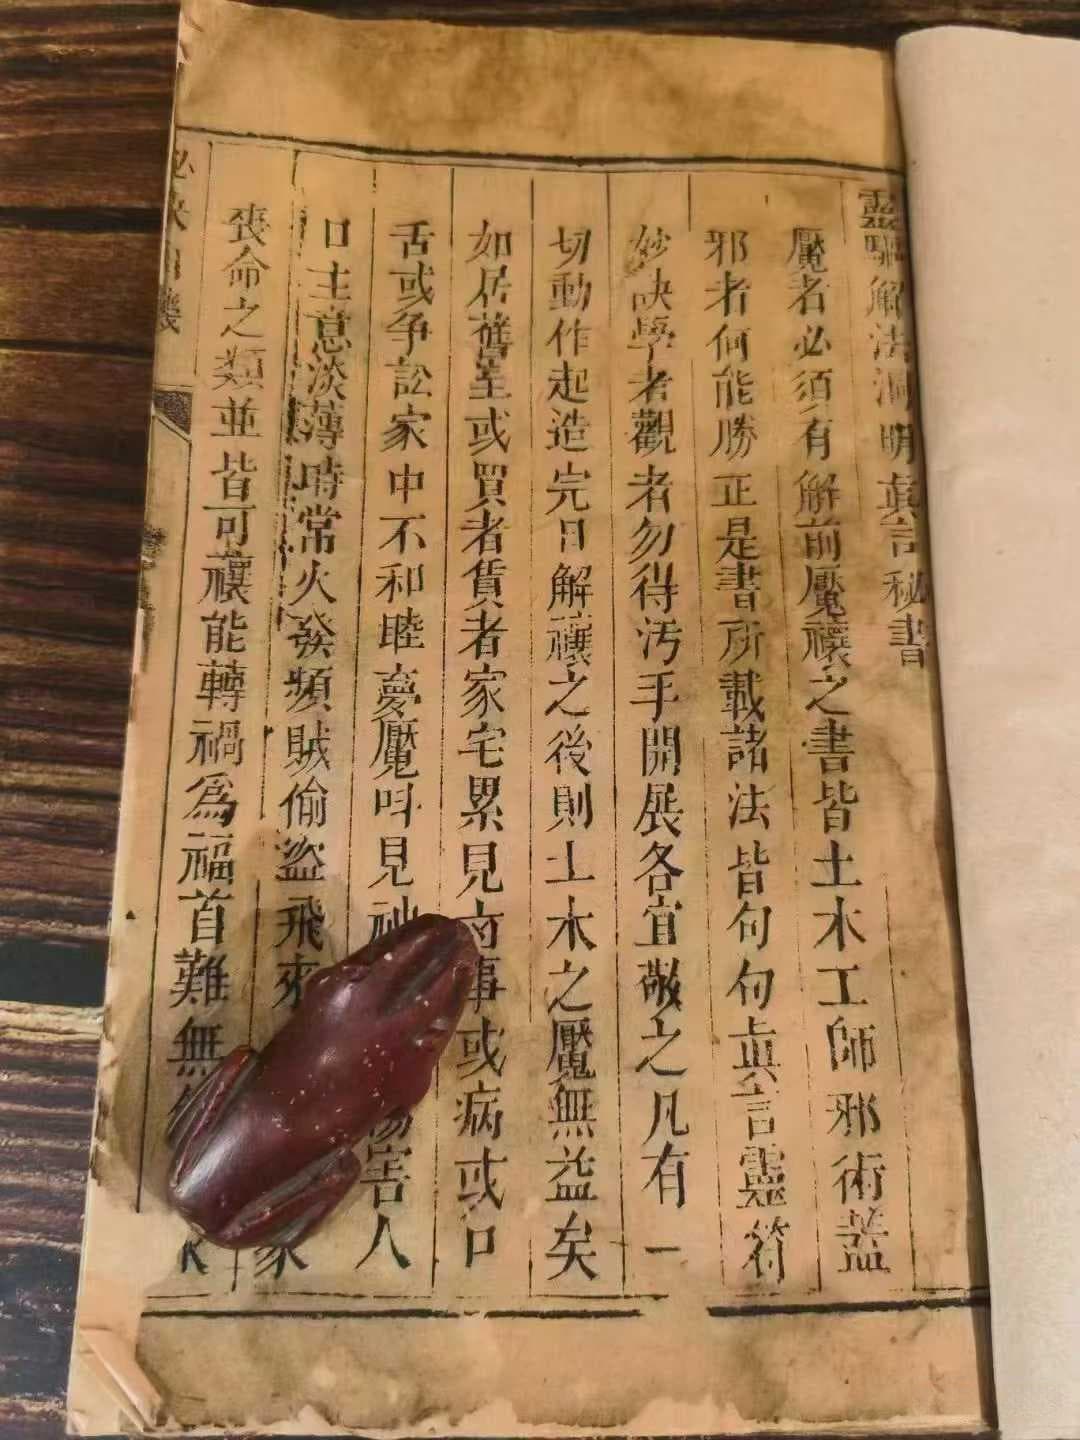 靈驅解法洞明真言秘書
魘者必須有解前魘禳之書皆土木工師邪術蓋
邪者何能勝正是書所載諸法皆句句真言靈符
妙訣學者觀者勿得汚手開展各宜敬之凡有一
切動作起造完日解禳之後則土木之魘無益矣
如居舊室或買者賃者家宅累見事或病或口
舌或争訟家中不和睦夢魘呌見害人
口主意淡薄時常火發頻賊偷盜飛來家
喪命之類並皆可禳能轉禍為福首難無